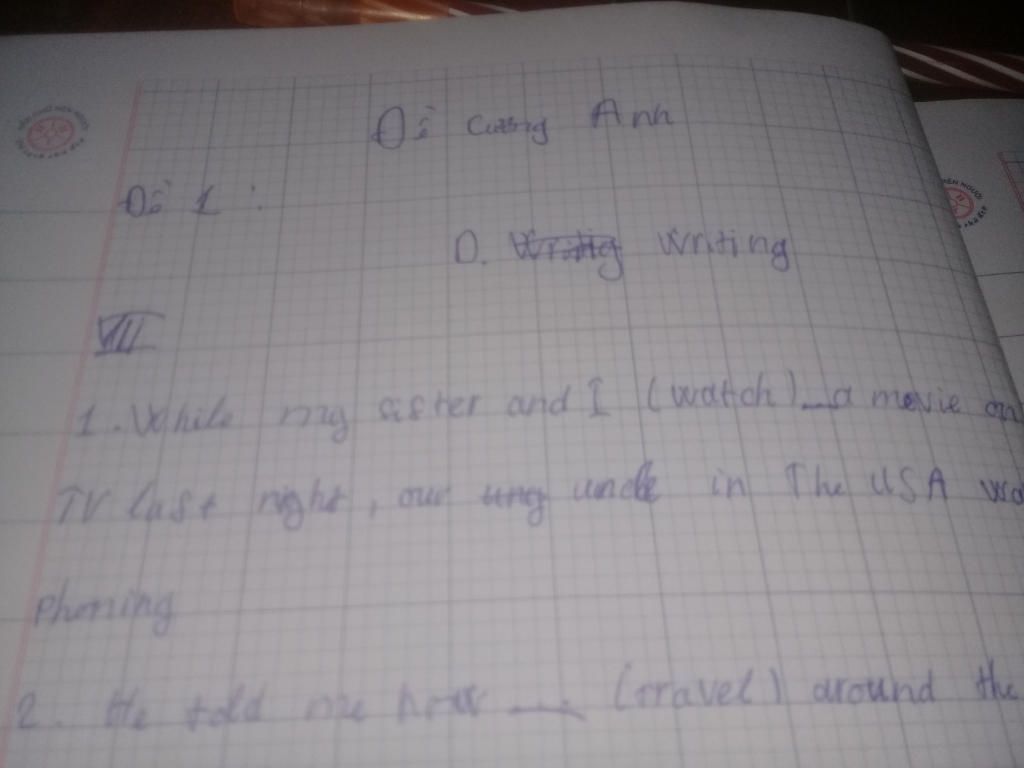 Đề cương Anh
Đề 1 :
D. Writing
VII
1. While my sister and I (watch) a movie on
TV last night, our uncle in The USA
phoning
2. He told me how (travel) around the